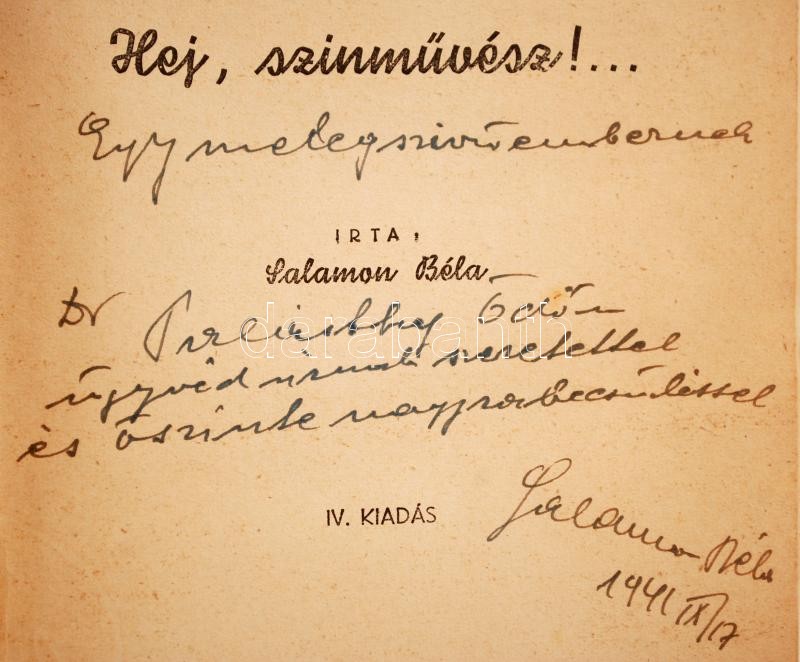 Hej, szinművész!...
Egy melegszivű embernek
IRTA:
Salamon Béla
Dr Ödön
darabanth
ügyvéd urnak szeretettel
és őszinte nagyrabecsüléssel
IV. KIADÁS
Salamon Béla
1941 IX/17